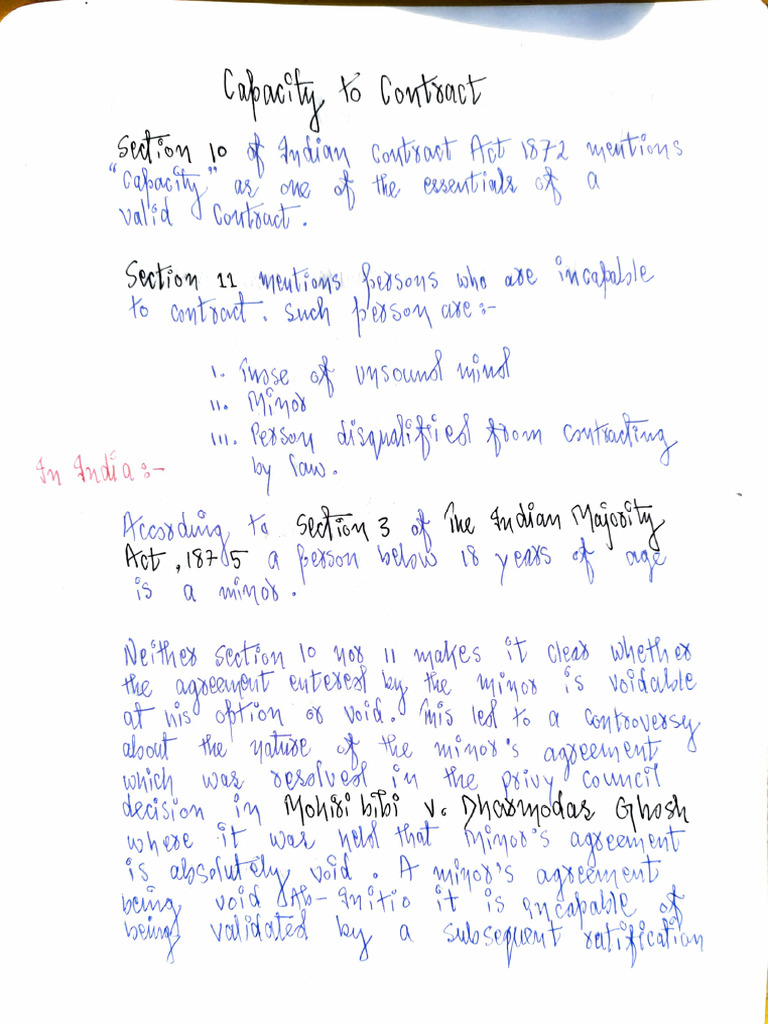 Capacity to Contract
Section 10 of Indian Contract Act 1872 mentions
"Capacity" as one of the essentials of a
valid Contract.
Section 11 mentions persons who are incapable
to contract. Such person are:-
i. Those of unsound mind
ii. Minor
iii. Person disqualified from contracting
by law.
In India:-
According to Section 3 of The Indian Majority
Act, 1875 a person below 18 years of age
is a minor.
Neither section 10 nor 11 makes it clear whether
the agreement entered by the minor is voidable
at his option or void. This led to a controversy
about the nature of the minor's agreement
which was resolved in the privy council
decision in Mohiri bibi v. Dharmodas Ghosh
where it was held that minor's agreement
is absolutely void. A minor's agreement
being void Ab-Initio it is incapable of
being validated by a subsequent ratification